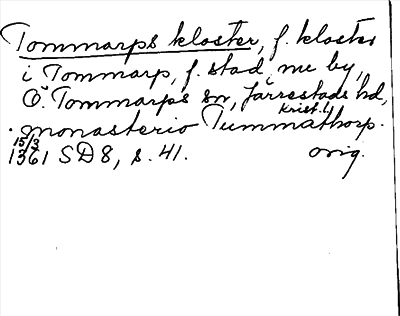 Tommarps kloster, f. kloster
i Tommarp, f. stad, nu by,
Ö. Tommarps sn, Järrestads hd,
Krist. l.
· monasterio Tummathorp.
15/3
1361 SD8, s. 41. orig.